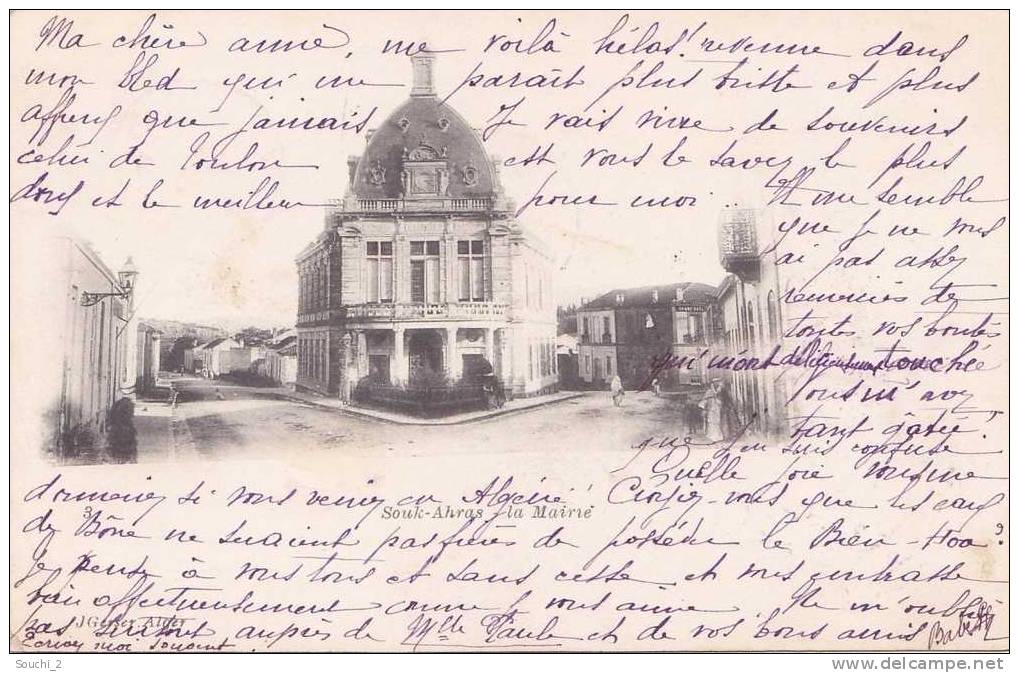 Ma chère amie, me voilà hélas! revenue dans
mon bled qui me paraît plus triste et plus
affreux que jamais. Je vais vivre de souvenirs
celui de Toulon est vous le savez le plus
doux et le meilleur pour moi
Il me semble
que je ne vous
ai pas assez
remerciés de
toutes vos bontés
qui m'ont délicieusement touchée
Vous m'avez
tant gâtée!
que j'en suis confuse
Quelle joie vous me
donneriez si vous veniez en Algérie! Croyez-vous que les
de Bône ne seraient pas fières de posséder le Bien-Hoa?
Je pense à vous tous et sans cesse et vous embrasse
bien affectueusement comme je vous aime. Ne m'oubliez
pas surtout auprès de Mlle Paule et de vos bons amis
Ecrivez moi souvent.
3 Souk-Ahras la Mairie
JGeiser Alger
Souchi_2
www.delcampe.net